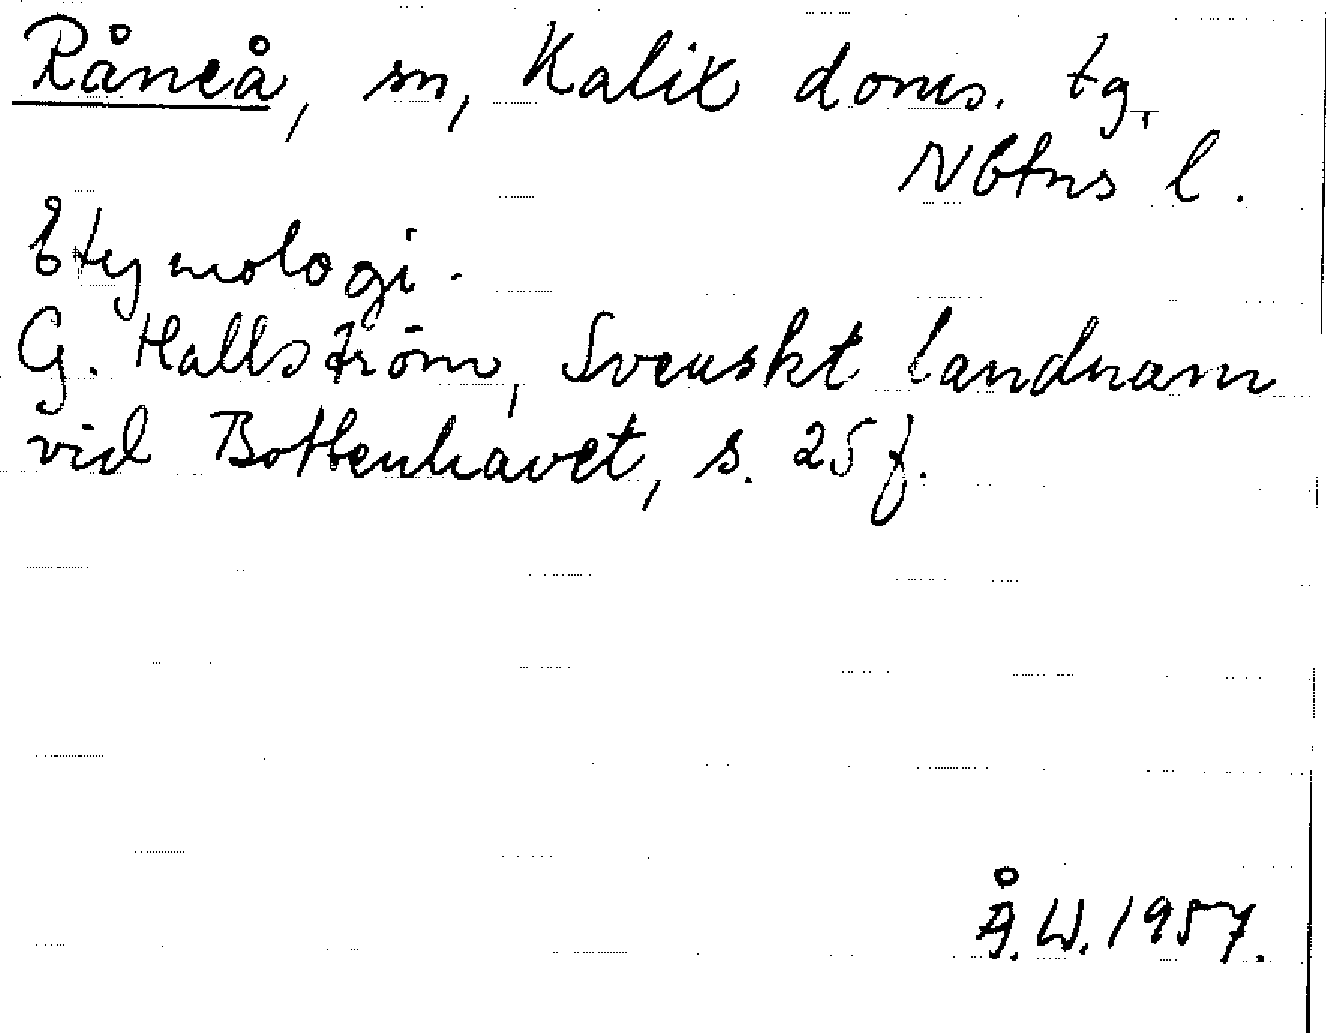 Råneå, sn, Kalix doms. tg,
Nbtns l.
Etymologi.
G. Hallström, Svenskt landnam
vid Bottenhavet, s. 25 f.
Å.W. 1957.